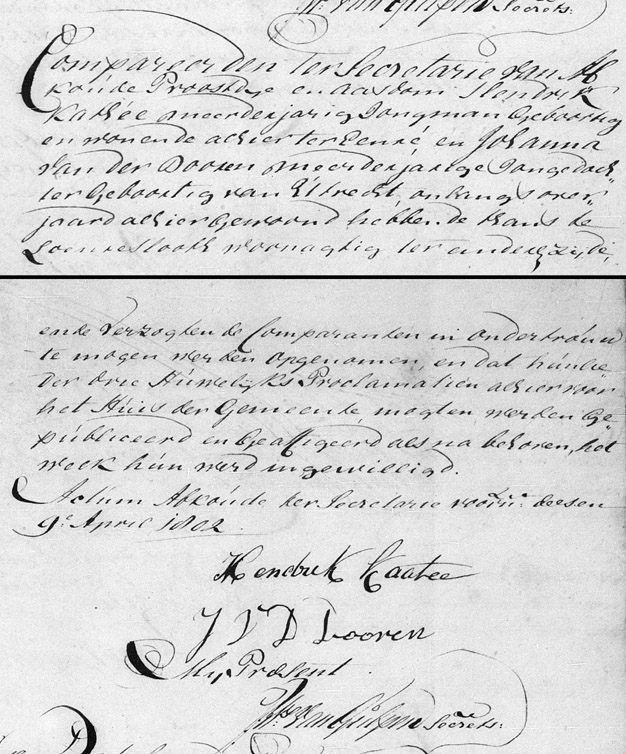 W: van Gulpen Secrets:
Compareerden ter Secretarie van Ab
koude Proostdye en aasdom Hendrik
Kathée meerderjarig Jongman geboortig
en wonende alhier ter eenre en Johanna
van der Dooren meerderjarige Jongedoch„
ter geboortig van Utrecht, onlangs over„
jaard alhier gewoond hebbende thans te
Loenresloot woonagtig ter anderezijde,
ende verzogten de Comparanten in ondertrouw
te mogen werden opgenomen, en dat hunlie
der drie Huwelyks Proclamatien alhier voor
het Huis der Gemeente mogten werden ge„
publiceerd en geaffigeerd als na behoren, het
welk hun werd ingewilligd.
Actum Abkoude ter Secretarie voorn: deesen
9e April 1802
Hendrik Kaatee
J V D Dooren
My Present
W: van Gulpen Secrets: